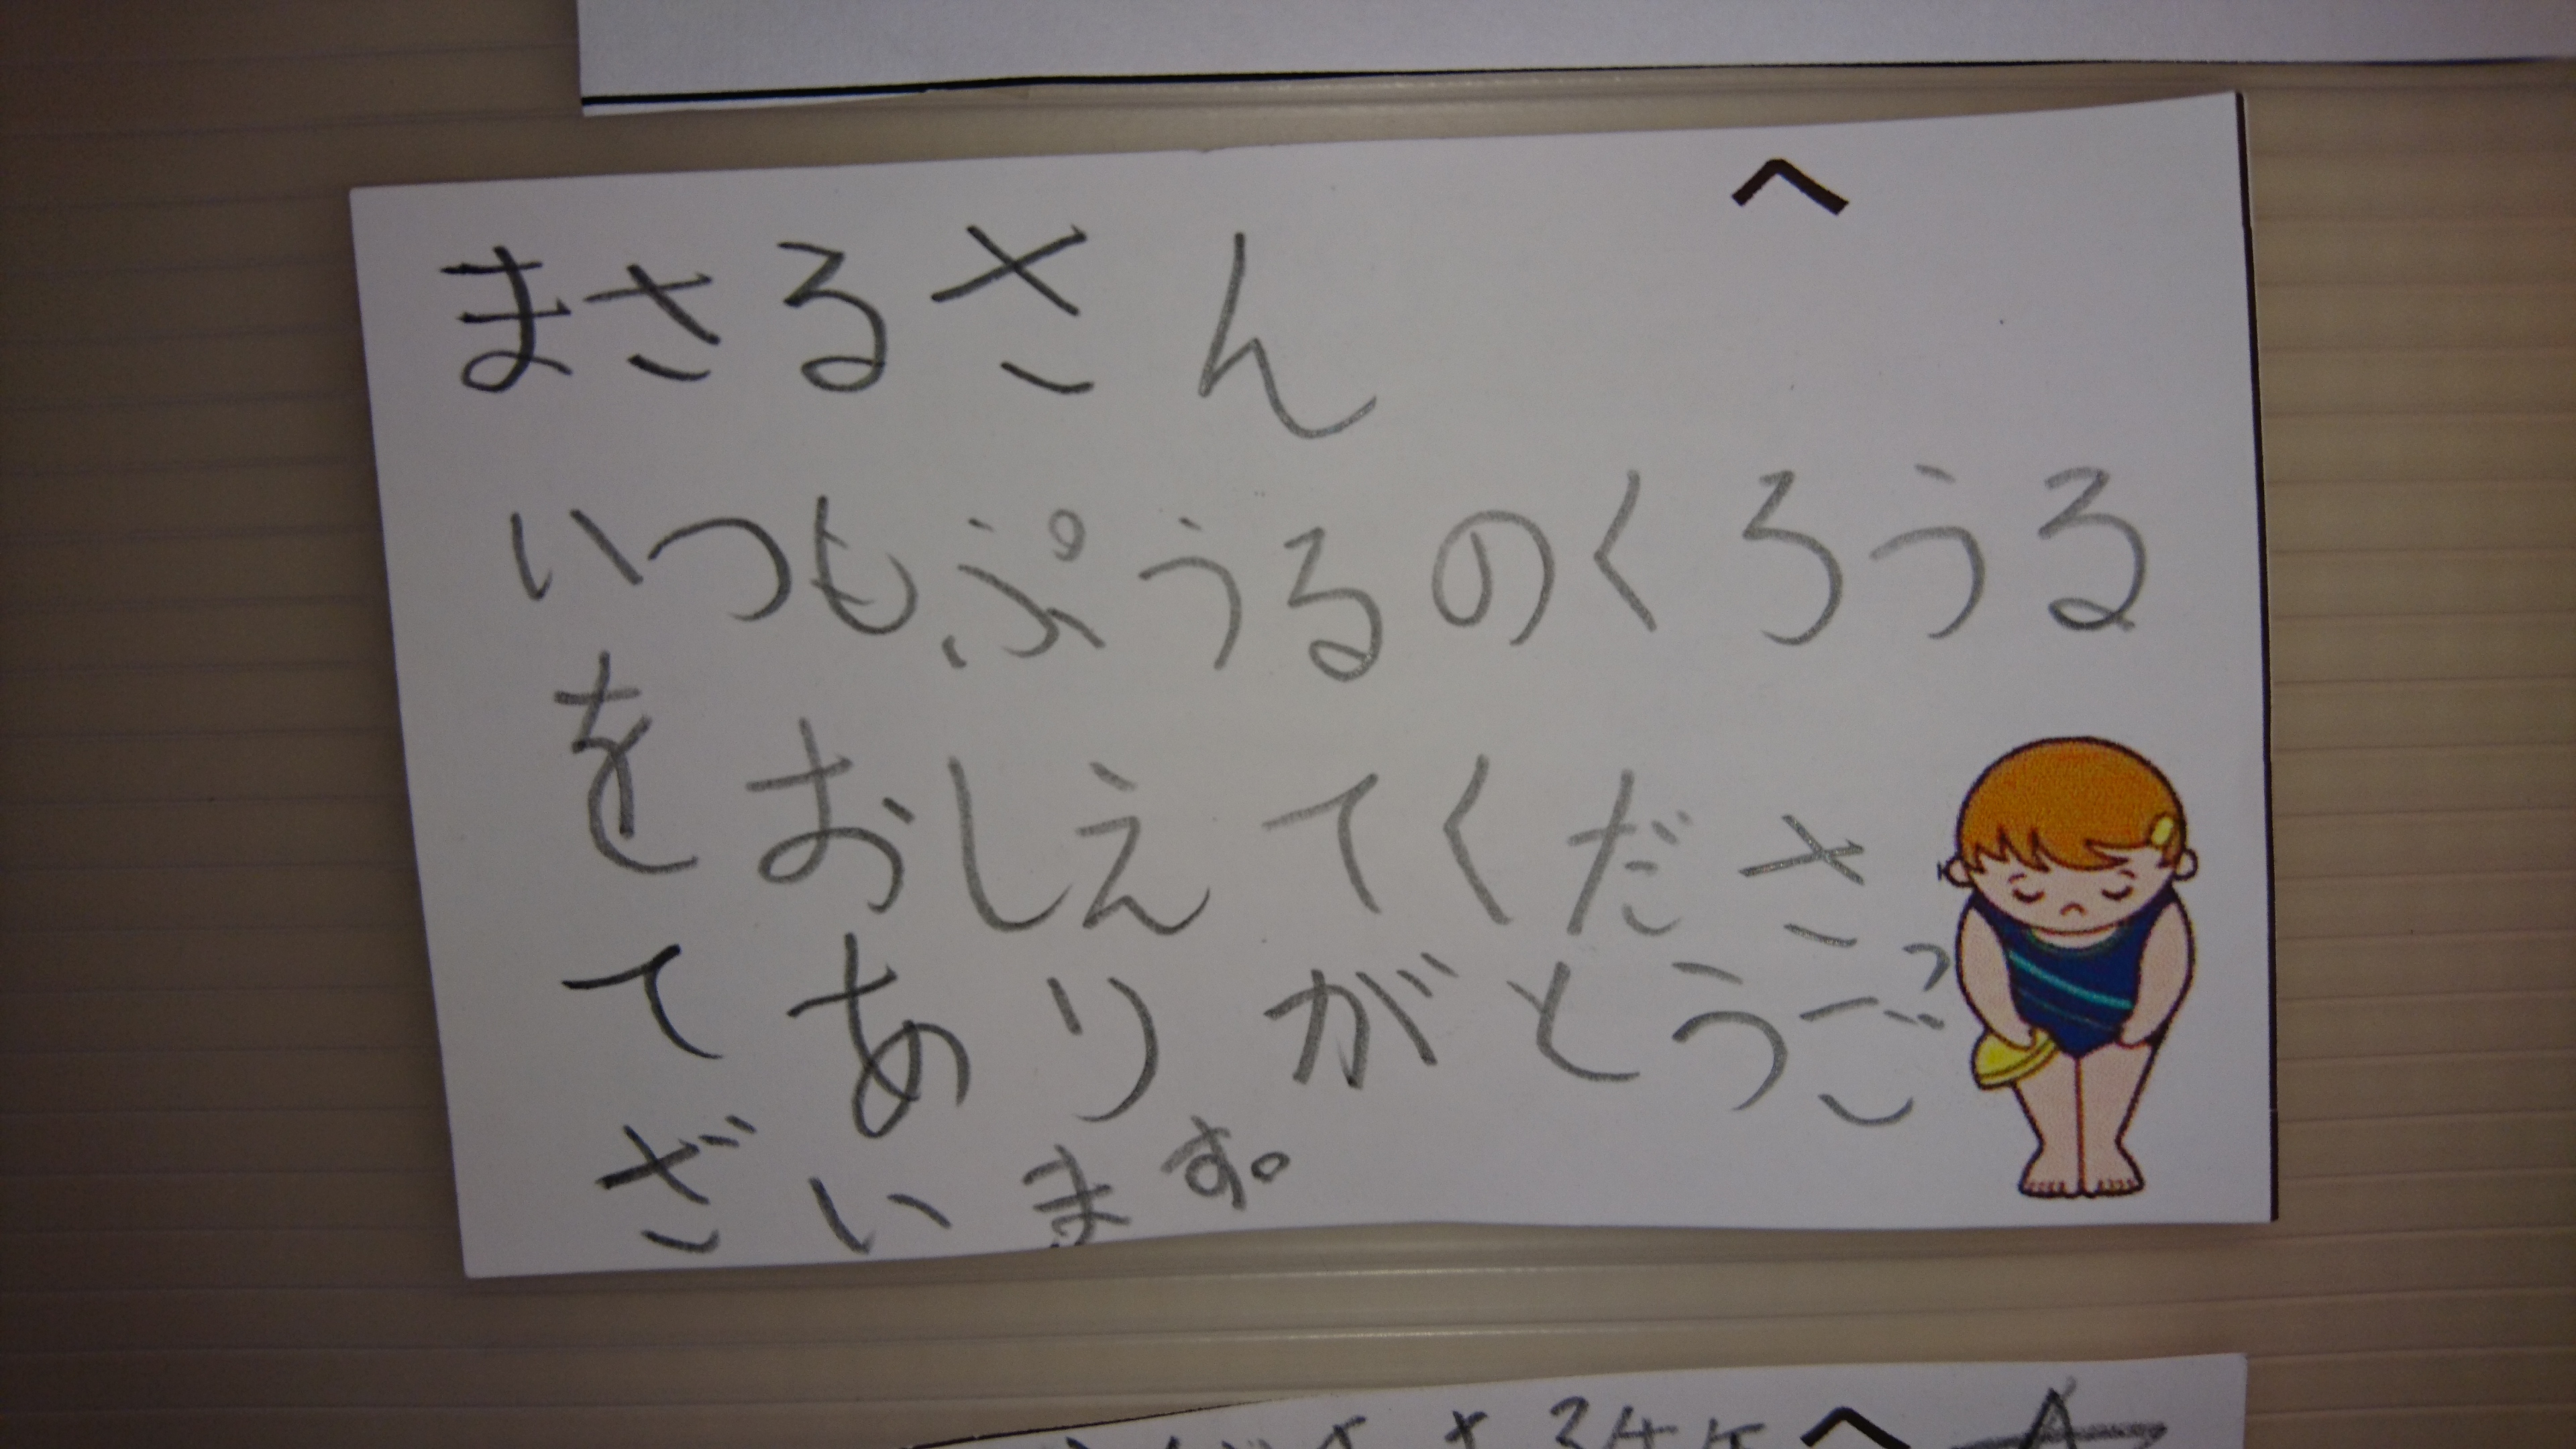 まさるさん へ
いつもぷうるのくろうる
をおしえてくださっ
てありがとうご
ざいます。
へ